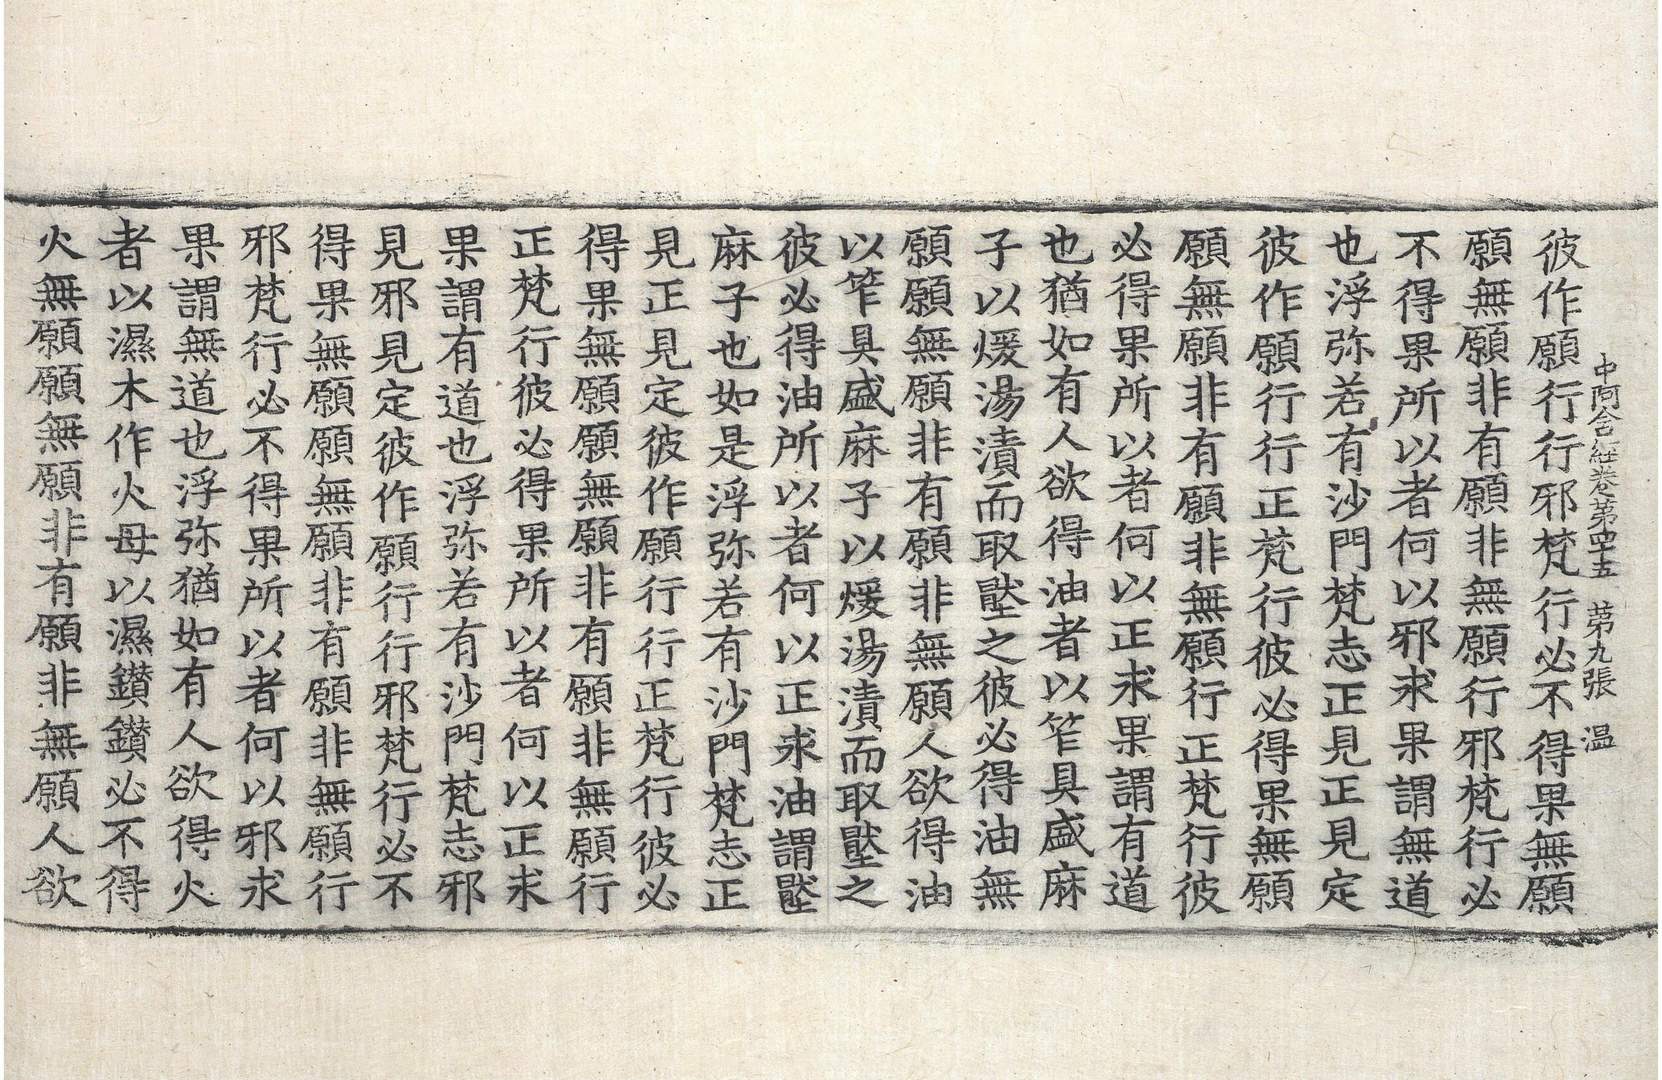 中阿含經卷第四十五 第九張 温
彼作願行行邪梵行必不得果無願
願無願非有願非無願行邪梵行必
不得果所以者何以邪求果謂無道
也浮弥若有沙門梵志正見正見定
彼作願行行正梵行彼必得果無願
願無願非有願非無願行正梵行彼
必得果所以者何以正求果謂有道
也猶如有人欲得油者以笮具盛麻
子以煖湯漬而取壓之彼必得油無
願願無願非有願非無願人欲得油
以笮具盛麻子以煖湯漬而取壓之
彼必得油所以者何以正求油謂壓
麻子也如是浮弥若有沙門梵志正
見正見定彼作願行行正梵行彼必
得果無願願無願非有願非無願行
正梵行彼必得果所以者何以正求
果謂有道也浮弥若有沙門梵志邪
見邪見定彼作願行行邪梵行必不
得果無願願無願非有願非無願行
邪梵行必不得果所以者何以邪求
果謂無道也浮弥猶如有人欲得火
者以濕木作火母以濕鑽鑽必不得
火無願願無願非有願非無願人欲